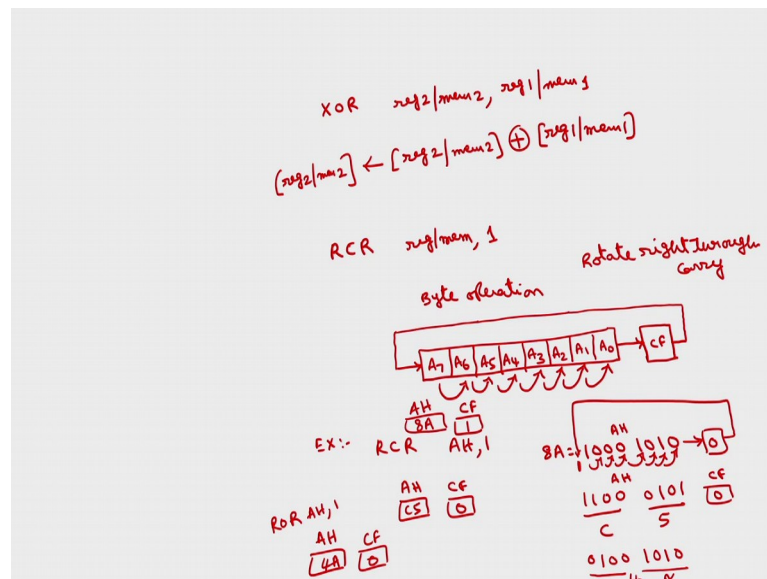 XOR reg2/mem2, reg1/mem1
[reg2/mem2] ← [reg2/mem2] ⊕ [reg1/mem1]
RCR reg/mem, 1
Rotate right Through
carry
Byte operation
A7 A6 A5 A4 A3 A2 A1 A0 → CF
AH CF
8A 1
Ex:- RCR AH,1
AH
8A = 1000 1010 → 0
1
AH CF
1100 0101 0
C 5
AH CF
C5 0
ROR AH,1
AH CF
4A 0
0100 1010